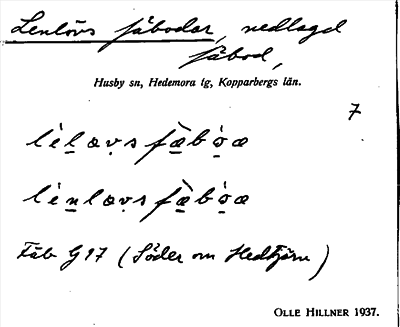 Lenlövs fäbodar, nedlagd
fäbod,
Husby sn, Hedemora tg, Kopparbergs län.
7
lèḻ æv̥s fæ̱bò̱æ
lèṉlæv̥s fæ̱bò̱æ
Fäb G17 (Söder om Hedtjärn)
OLLE HILLNER 1937.